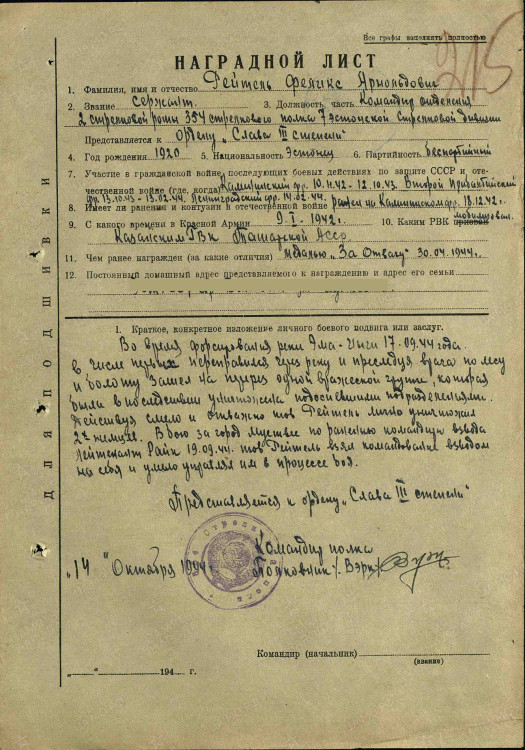 Все графы заполнять полностью
215
НАГРАДНОЙ ЛИСТ
1. Фамилия, имя и отчество Рейтель Феликс Арнольдович
2. Звание сержант. 3. Должность, часть Командир отделения
2 стрелковой роты 354 стрелкового полка 7 Эстонской Стрелковой дивизии
Представляется к Ордену „Слава III степени“
4. Год рождения 1920 5. Национальность Эстонец 6. Партийность Беспартийный
7. Участие в гражданской войне, последующих боевых действиях по защите СССР и оте-
чественной войне (где, когда) Калининский фр. 10.11.42 - 12.10.43. Второй Прибалтийский
фр. 13.10.43 - 13.02.44. Ленинградский фр. 14.02.44.
8. Имеет ли ранения и контузии в отечественной войне ранен на Калининском фр. 18.12.42 г.
9. С какого времени в Красной Армии 9.I.1942 г. 10. Каким РВК призван мобилизован.
Казанским ГВК Татарской АССР
11. Чем ранее награжден (за какие отличия) медалью „За Отвагу“ 30.04.1944 г.
12. Постоянный домашний адрес представляемого к награждению и адрес его семьи
Для подшивки
I. Краткое, конкретное изложение личного боевого подвига или заслуг.
Во время форсирования реки Эма-Йыги 17.09.44 года.
в числе первых переправился через реку и преследуя врага по лесу
и болоту зашел на перерез одной вражеской групе, которая
была в последствии уничтожена подоспевшими подразделеньями.
Действуя смело и отважно тов Рейтель лично уничтожил
2х немцев. В бою за город Муствее по ранению командира взвода
Лейтенанта Райк 19.09.44. тов Рейтель взял командование взводом
на себя и умело управлял им в процессе боя.
Представляется к ордену „Слава III степени“
Командир полка
Полковник /Вэрк/
„14“ Октября 1944 г.
Командир (начальник)
(звание)
„ “ 194 г.